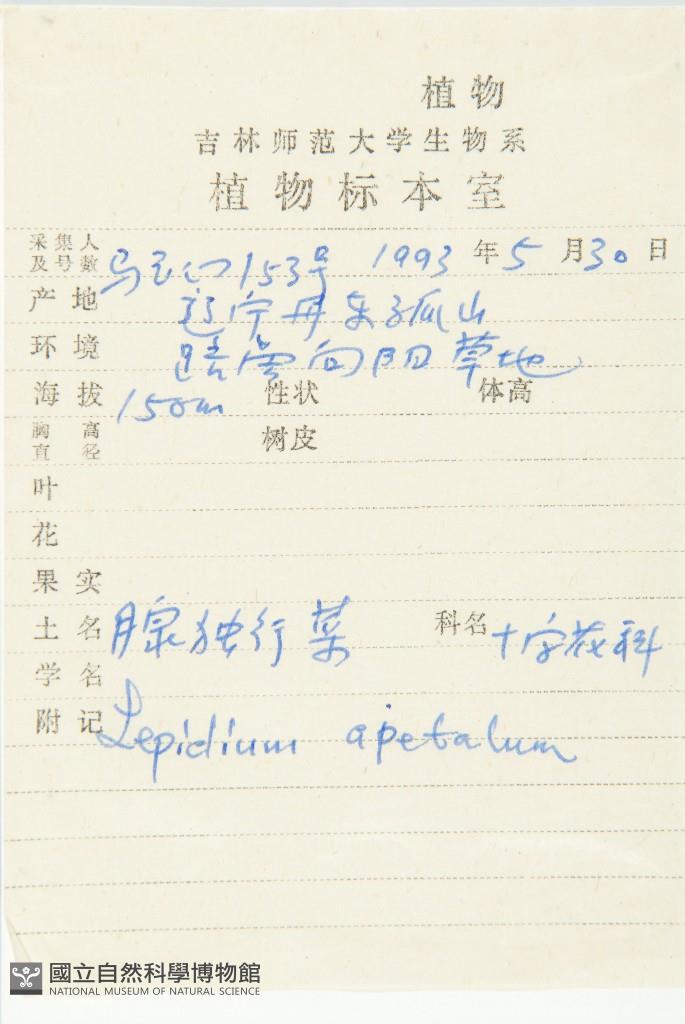 植物
吉林师范大学生物系
植物标本室
采集人及号数 马 153号 1993年5月30日
产地 辽宁丹东孤山
环境 路旁向阳草地
海拔 150m 性状 体高
胸高直径 树皮
叶
花
果实
土名 腺独行菜 科名 十字花科
学名
附记 Lepidium apetalum
國立自然科學博物館
NATIONAL MUSEUM OF NATURAL SCIENCE